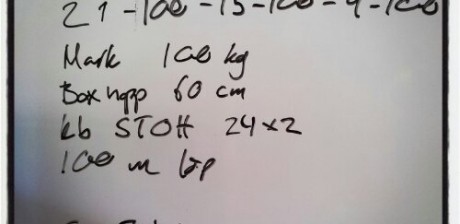 21-100-15-100-9-100
Mark 100 kg
Boxhopp 60 cm
kb STOH 24x2
100 m löp